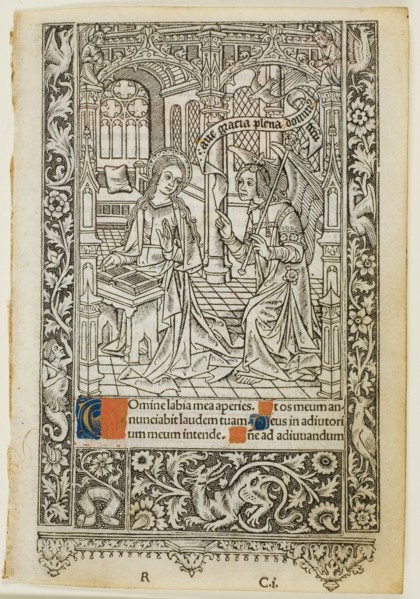 aue gracia plena domin
Domine labia mea aperies. Et os meum an-
nunciabit laudem tuam. Deus in adiutori
um meum intende. Dñe ad adiuuandum
R C.i.